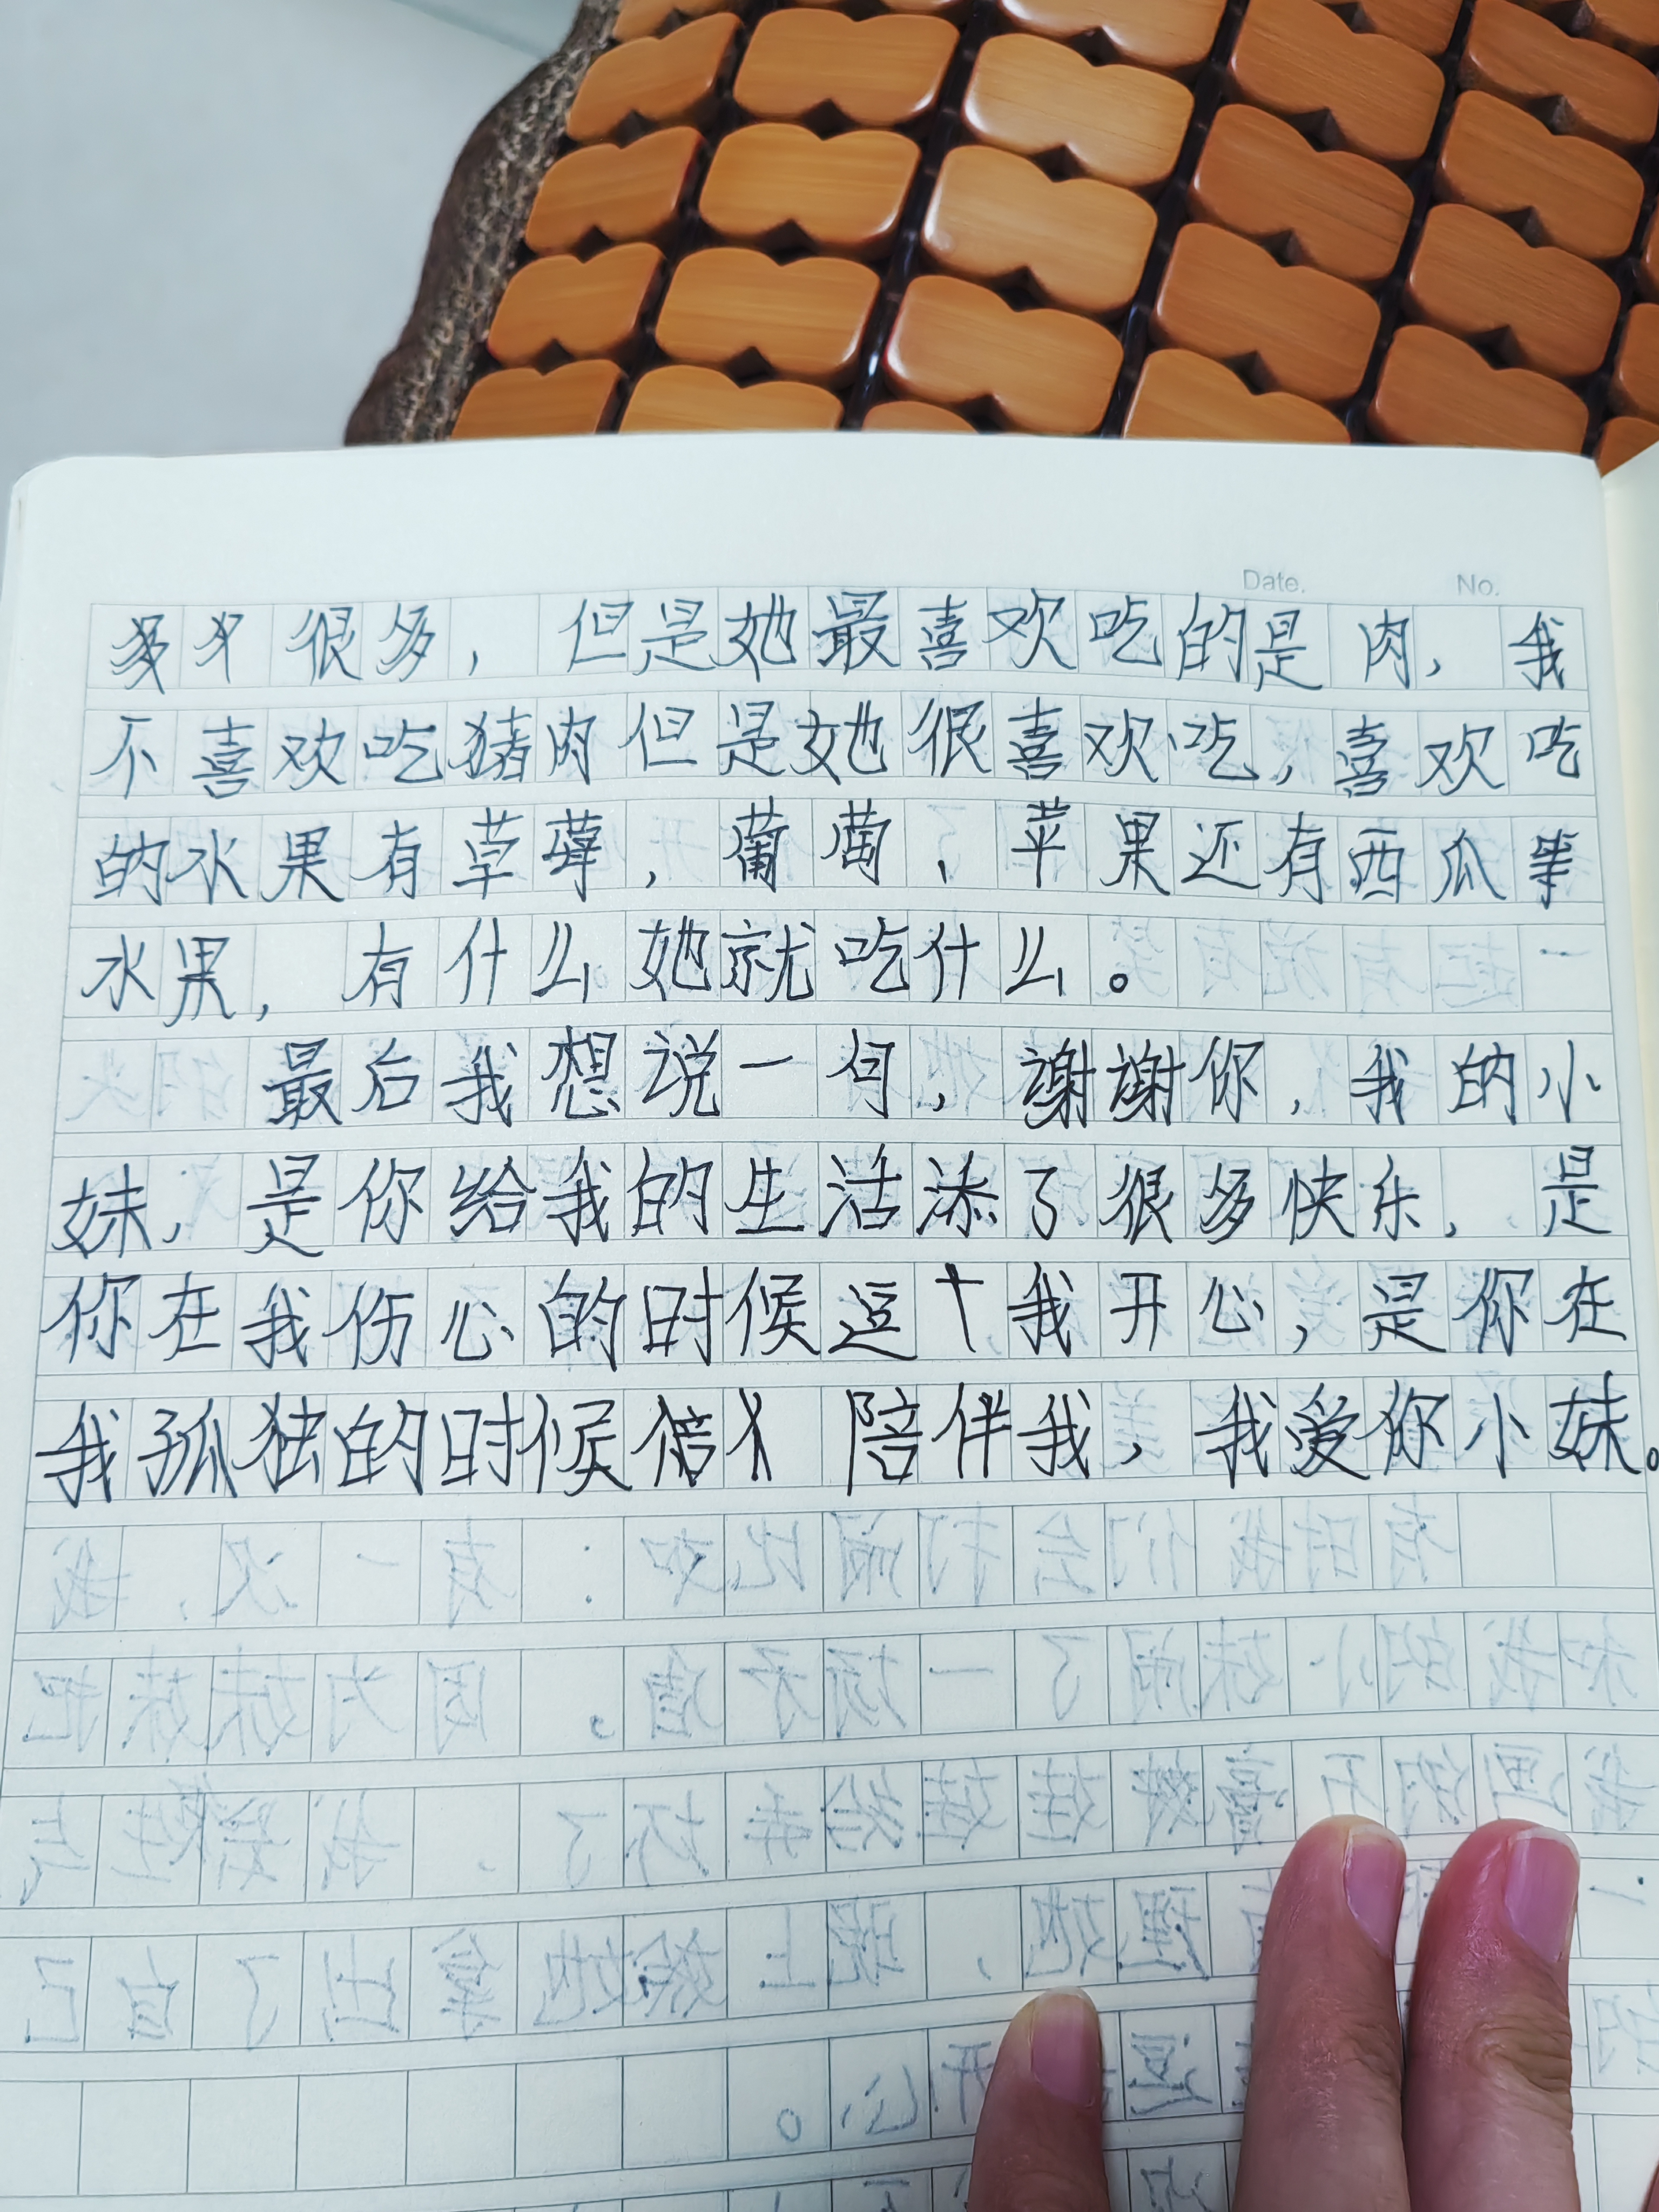 Date. No.
很多，但是她最喜欢吃的是肉，我
不喜欢吃猪肉但是她很喜欢吃，喜欢吃
的水果有草莓，葡萄、苹果还有西瓜等
水果，有什么她就吃什么。
最后我想说一句，謝謝你，我的小
妹，是你给我的生活添了很多快乐，是
你在我伤心的时候逗我开心，是你在
我孤独的时候陪伴我，我爱你小妹。